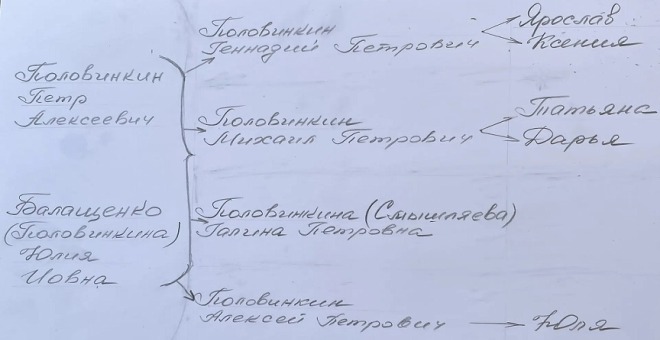 Половинкин
Петр
Алексеевич
Балащенко
(Половинкина)
Юлия
Иовна
Половинкин
Геннадий Петрович
Ярослав
Ксения
Половинкин
Михаил Петрович
Татьяна
Дарья
Половинкина (Смышляева)
Галина Петровна
Половинкин
Алексей Петрович
Юля